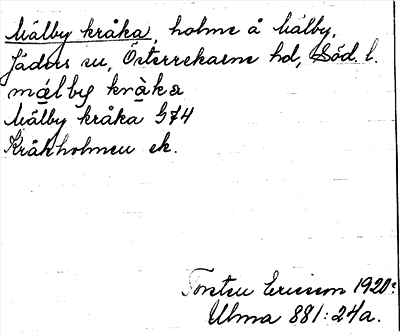 Mälby kråka, holme å Mälby,
Jäders sn, Österrekarne hd, Söd. l.
mälby kràka
Mälby kråka G74
Kråkholmen ek.
Torsten Ericsson 1920:
Ulma 881:24a.